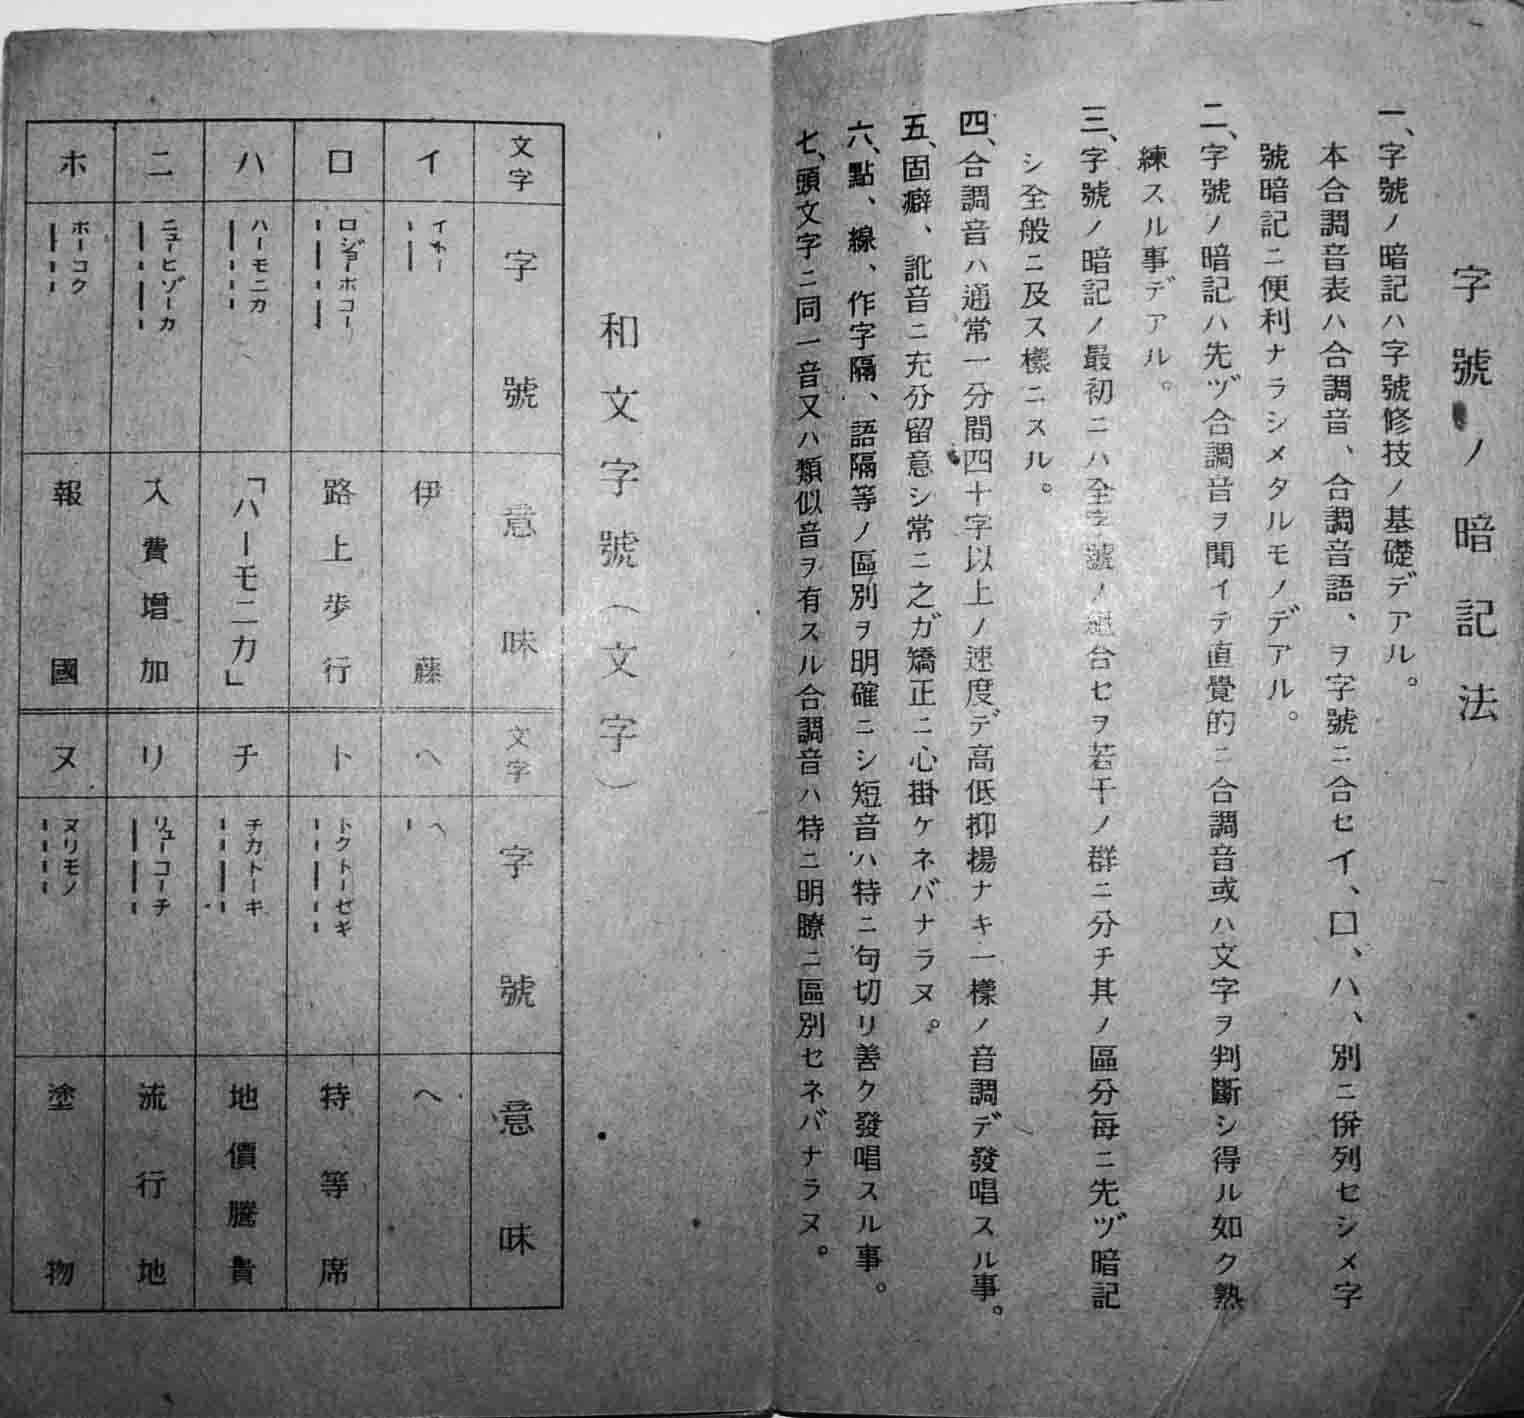 字號ノ暗記法
一、字號ノ暗記ハ字號修技ノ基礎デアル。
本合調音表ハ合調音、合調音語、ヲ字號ニ合セイ、ロ、ハ、別ニ併列セシメ字
號暗記ニ便利ナラシメタルモノデアル。
二、字號ノ暗記ハ先ヅ合調音ヲ聞イテ直覺的ニ合調音或ハ文字ヲ判斷シ得ル如ク熟
練スル事デアル。
三、字號ノ暗記ノ最初ニハ全字號ノ組合セヲ若干ノ群ニ分チ其ノ區分每ニ先ヅ暗記
シ全般ニ及ス樣ニスル。
四、合調音ハ通常一分間四十字以上ノ速度デ高低抑揚ナキ一樣ノ音調デ發唱スル事。
五、固癖、訛音ニ充分留意シ常ニ之ガ矯正ニ心掛ケネバナラヌ。
六、點、線、作字隔、語隔等ノ區別ヲ明確ニシ短音ハ特ニ句切リ善ク發唱スル事。
七、頭文字ニ同一音又ハ類似音ヲ有スル合調音ハ特ニ明瞭ニ區別セネバナラヌ。
和文字號(文字)
文字 字號 意味 文字 字號 意味
イ イトー 伊藤 ヘ ヘ ヘ
ロ ロジョーホコー 路上歩行 ト トクトーセキ 特等席
ハ ハーモニカ 「ハーモニカ」 チ チカトーキ 地價騰貴
ニ ニューヒゾーカ 入費增加 リ リューコーチ 流行地
ホ ホーコク 報國 ヌ ヌリモノ 塗物